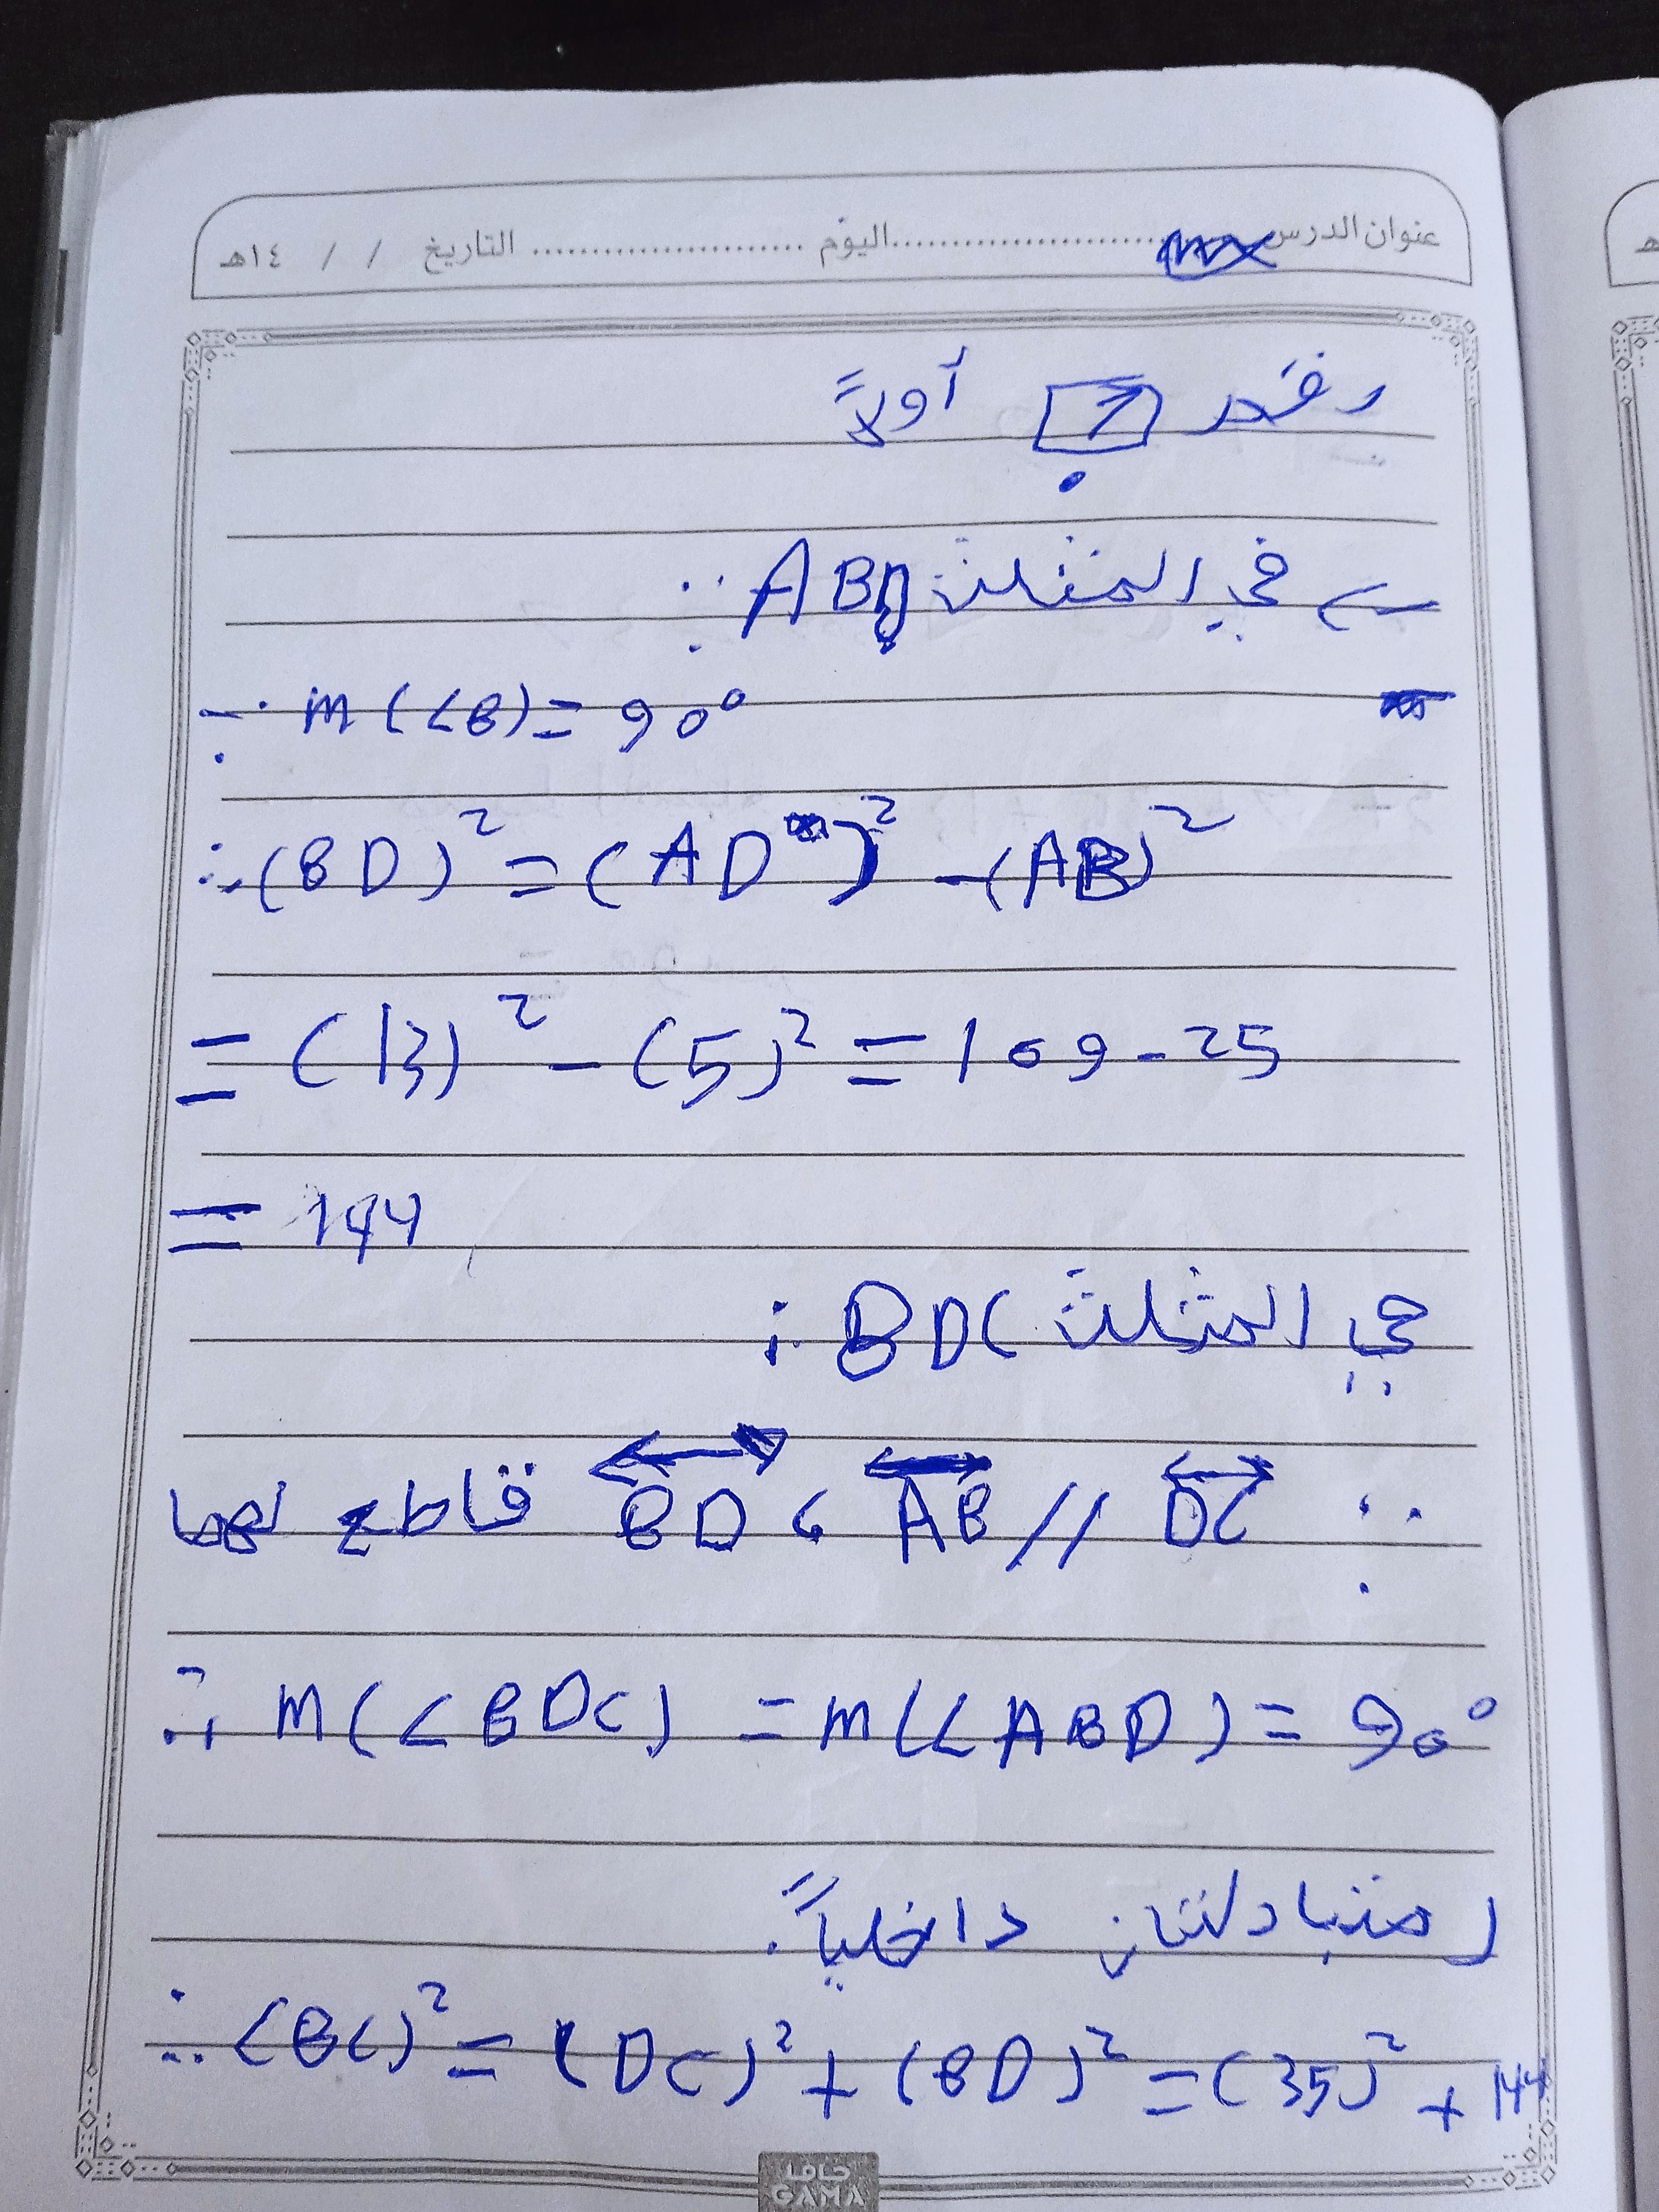 عنوان الدرس ........................ اليوم ........................ التاريخ / / ١٤هـ
أولاً
في المثلث ABD:
∵ m(∠B) = 90°
∴ (BD)² = (AD)² - (AB)²
= (13)² - (5)² = 169 - 25
= 144
في المثلث BDC:
∵ DC // AB ، BD قاطع لهما
∴ m(∠BDC) = m(∠ABD) = 90°
(متبادلتان داخلياً.
∴ (BC)² = (DC)² + (BD)² = (35)² + 144
جاما
GAMA